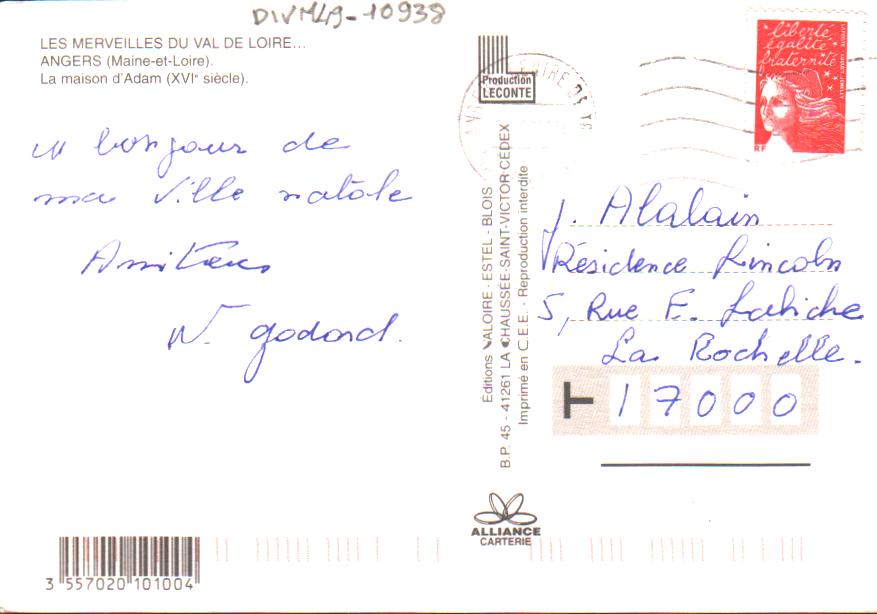 DIVM49-10938
LES MERVEILLES DU VAL DE LOIRE...
ANGERS (Maine-et-Loire).
La maison d'Adam (XVIe siècle).
un bonjour de
ma Ville natale
Amitiés
N. Godard.
Production
LECONTE
Editions VALOIRE - ESTEL - BLOIS
B.P. 45 - 41261 LA CHAUSSÉE-SAINT-VICTOR CEDEX
Imprimé en C.E.E. - Reproduction interdite
liberté
égalité
fraternité
RF
LA POSTE
J. Alalain
Résidence Lincoln
5, Rue E. Labiche
La Rochelle.
T 17000
ALLIANCE
CARTERIE
3 557020 101004